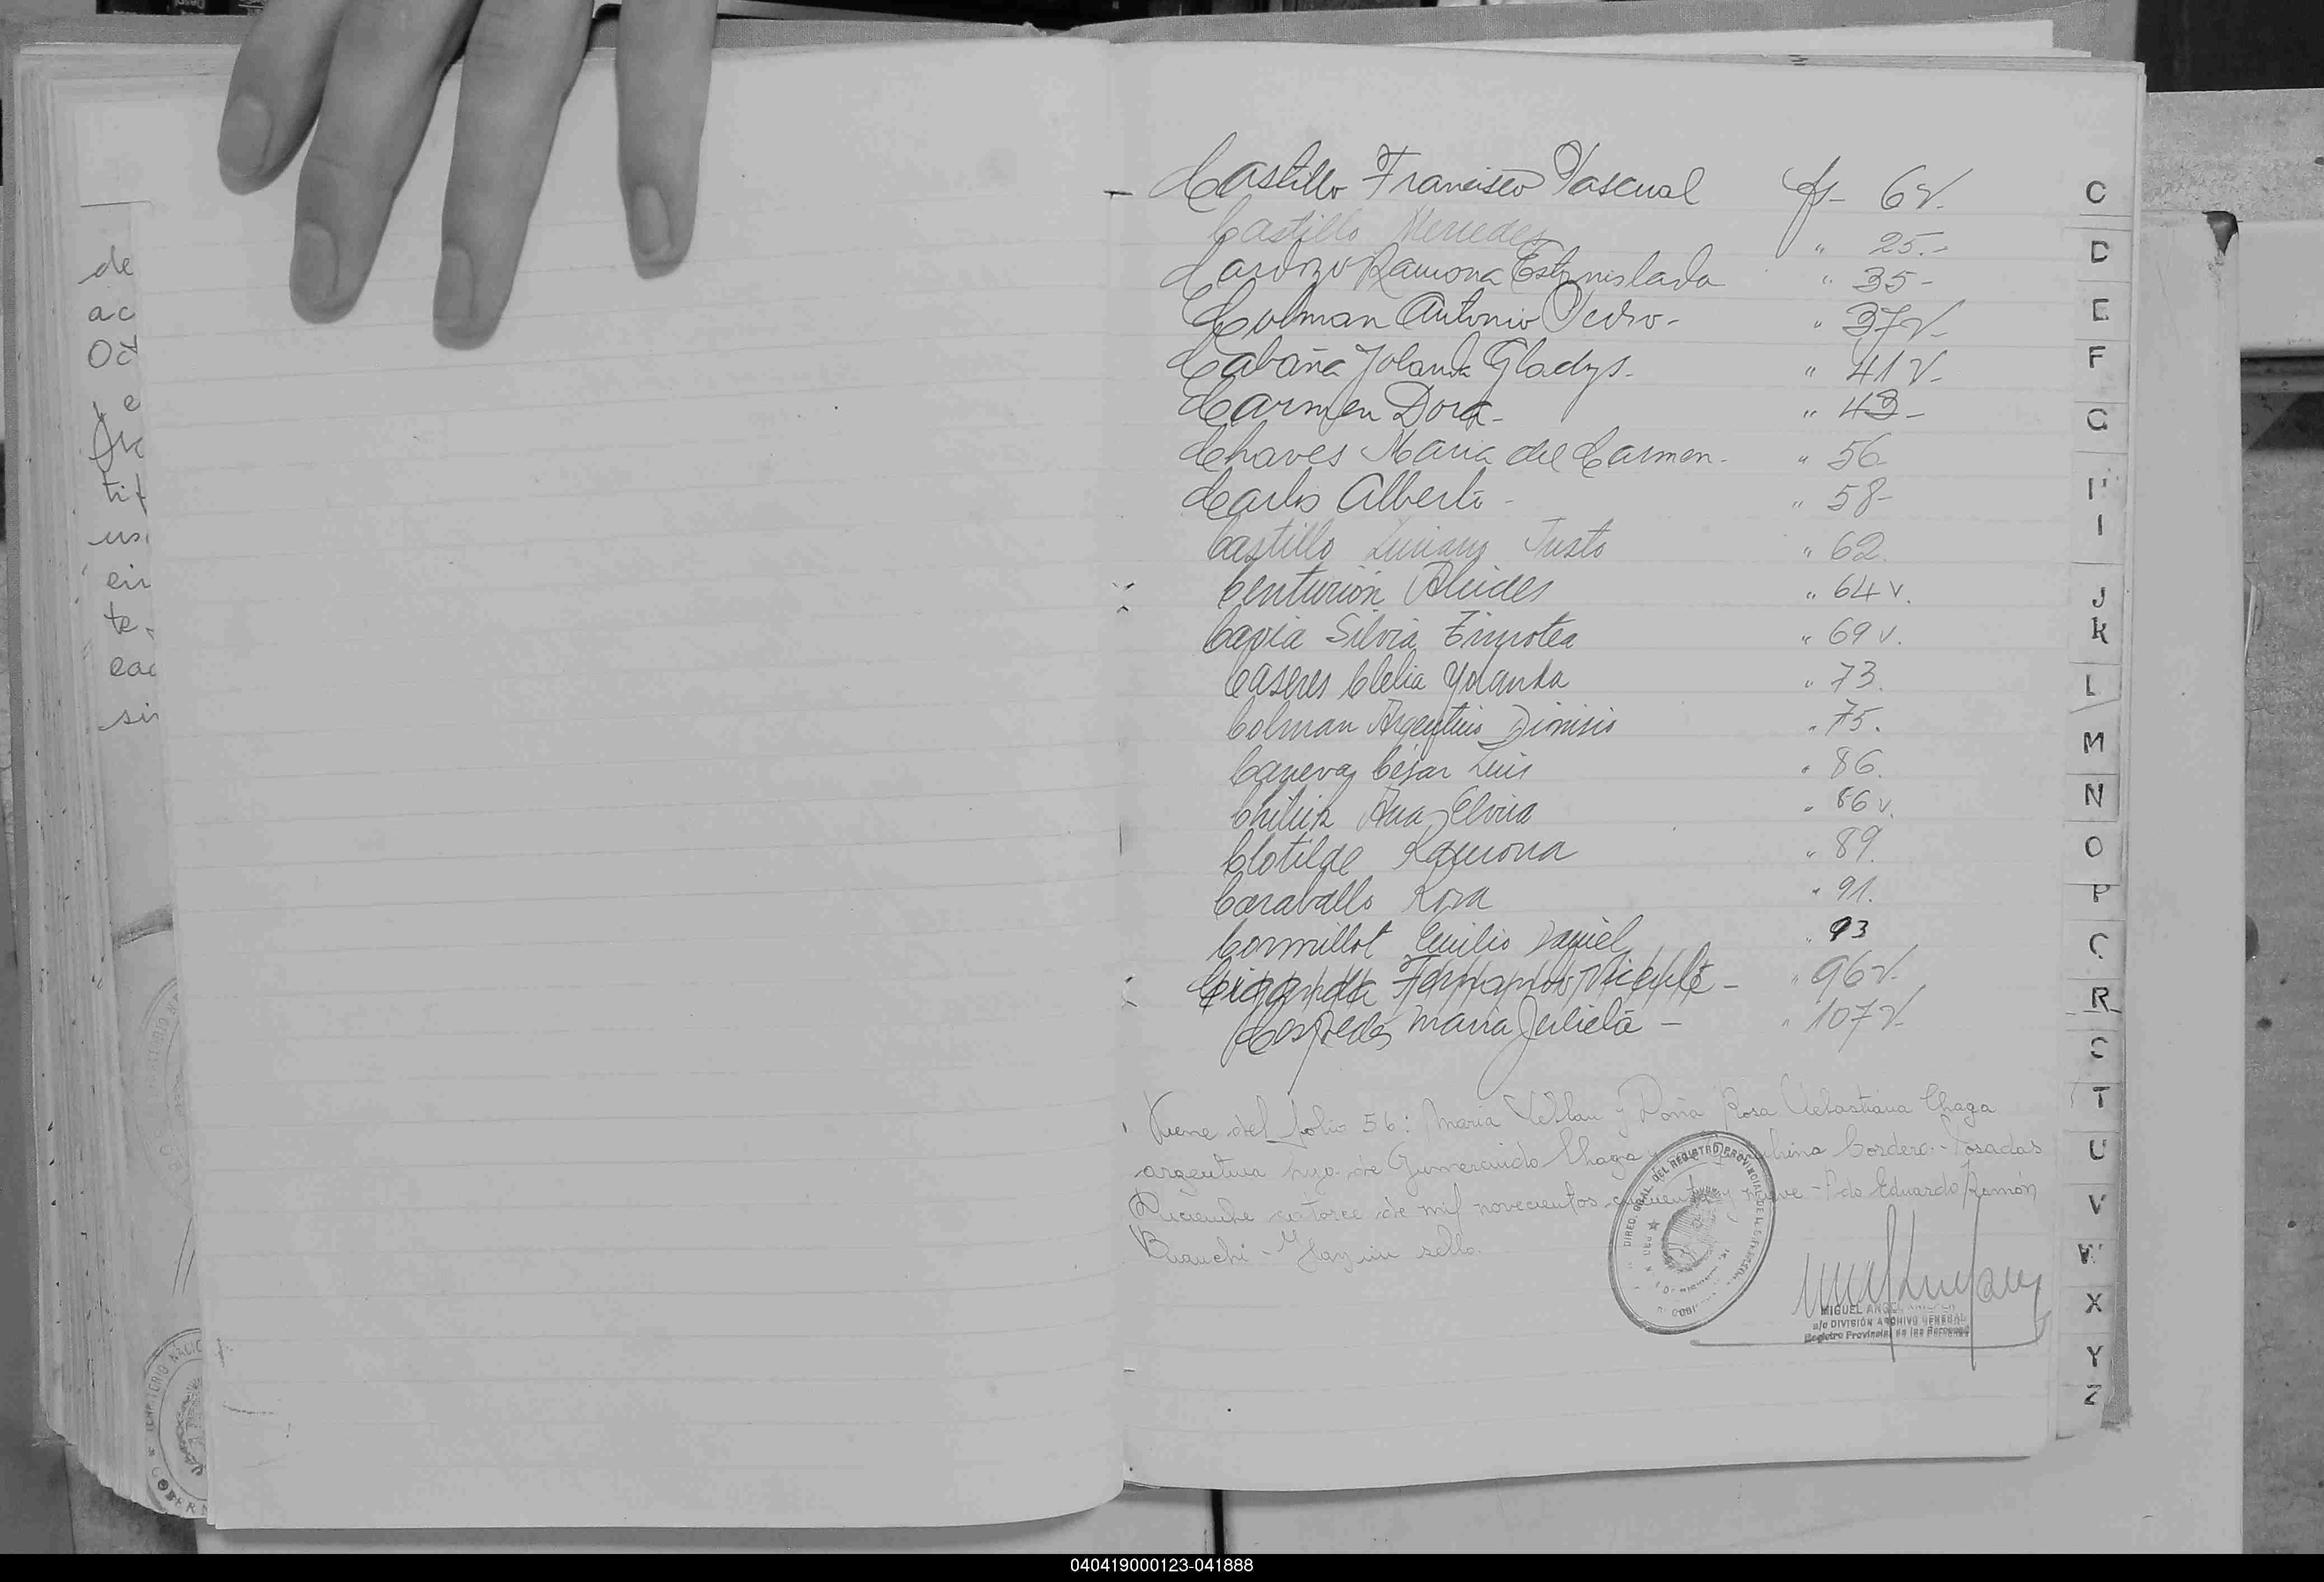 de
ac
Oct
e
tif
us
ein
te
cac
sir
Castillo Francisco Pascual fs- 6v.
Castillo Mercedes " 25.-
Cardozo Ramona Estanislada " 35-
Colman Antonio Pedro- " 37v-
Cabaña Yolanda Gladys- " 41v-
Carmen Dora- " 43-
Chaves Maria del Carmen- " 56-
Carlos Alberto- " 58-
Castillo Luciano Justo " 62.
Centurión Alcides " 64 v.
Cavia Silvia Timotea " 69 v.
Caseres Clelia Yolanda " 73.
Colman Argentino Dionisio " 75.
Caneva César Luis " 86.
Ana Elvira " 86 v.
Clotilde Ramona " 89.
Caraballo Rosa " 91.
Cormillot Emilio Daniel " 93
Vicente- " 96v-
Cespedes Maria Julieta - " 107v-
Viene del folio 56: Maria y Doña Rosa Sebastiana Chaga
argentina hija de Gumercindo Chaga Cordero.- Posadas
Diciembre catorce de mil novecientos cincuenta y nueve - Fdo Eduardo Ramón
Bianchi - Hay un sello.
DIREC. GRAL. DEL REGISTRO PROVINCIAL DE
MIGUEL ANGEL
a/c DIVISIÓN ARCHIVO GENERAL
Registro Provincial de las Personas
C
D
E
F
G
H
I
J
K
L
M
N
O
P
Q
R
S
T
U
V
W
X
Y
Z
040419000123-041888